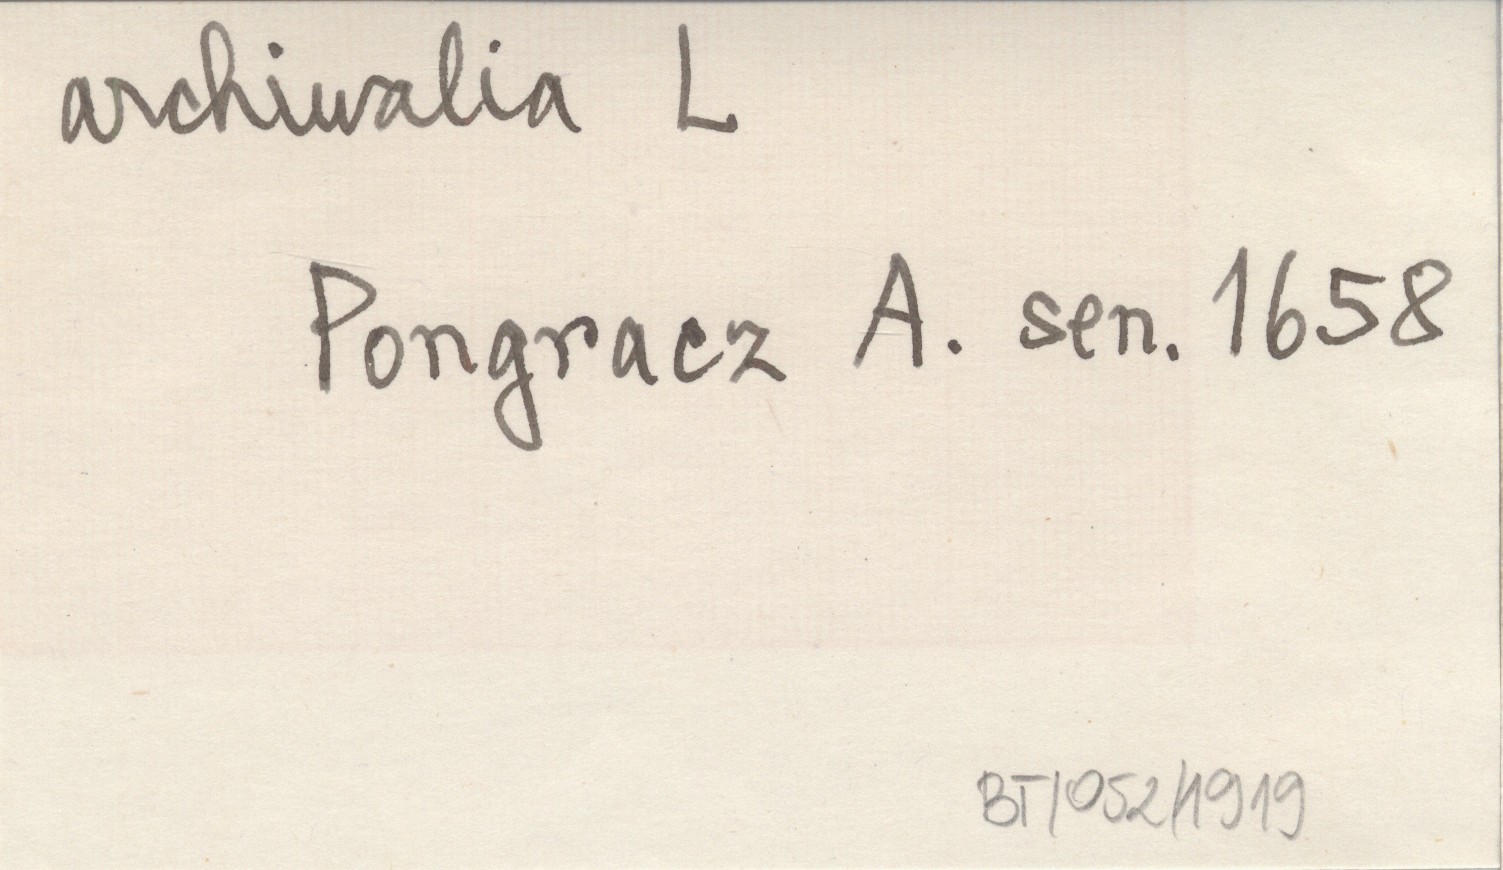 archiwalia L
Pongracz A. sen. 1658
BT/052/1919